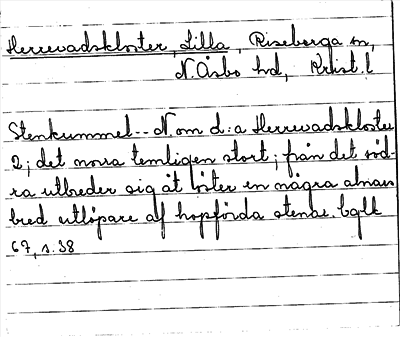 Herrevadskloster, Lilla, Riseberga sn,
N. Åsbo hd, Krist. l
Stenkummel -- N. om L:a Herrevadskloster
2; det norra temligen stort; från det söd-
ra utbreder sig åt öster en några alnar
bred utlöpare af hopförda stenar.
67, s. 38